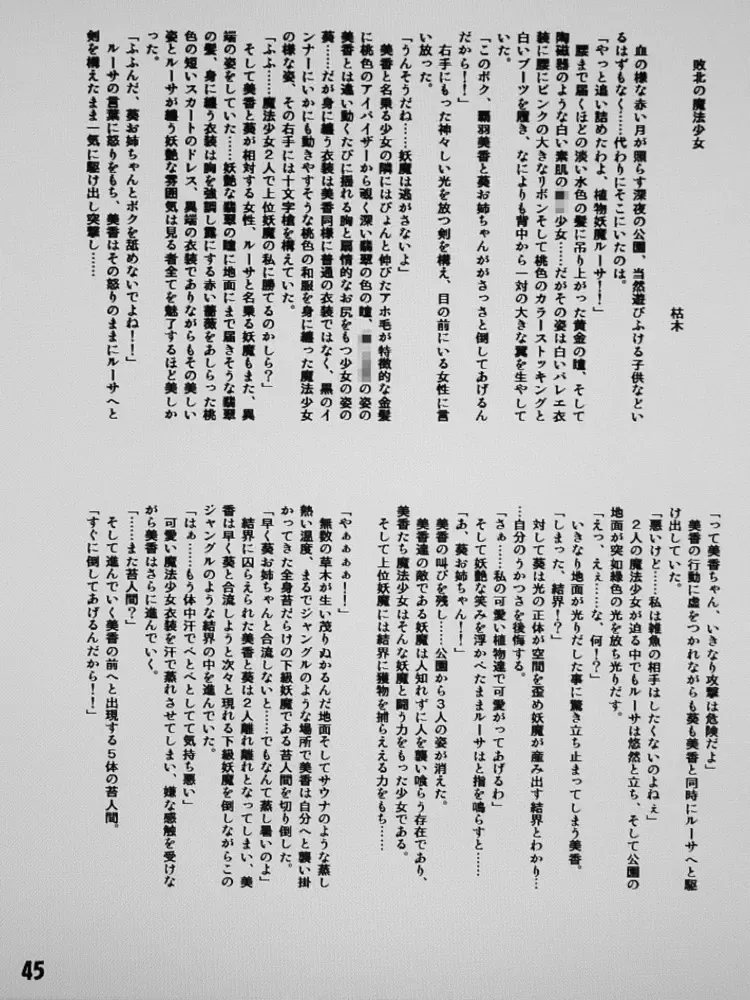 敗北の魔法少女
枯木
血の様な赤い月が照らす深夜の公園、当然遊びふける子供などい
るはずもなく……代わりにそこにいたのは。
「やっと追い詰めたわよ、植物妖魔ルーサ！！」
腰まで届くほどの淡い水色の髪に吊り上がった黄金の瞳、そして
陶磁器のような白い素肌の少女……だがその姿は白いバレエ衣
装に腰にピンクの大きなリボンそして桃色のカラーストッキングと
白いブーツを履き、なによりも背中から一対の大きな翼を生やして
いた。
「このボク、覇羽美香と葵お姉ちゃんががさっさと倒してあげるん
だから！！」
右手にもった神々しい光を放つ剣を構え、目の前にいる女性に言
い放った。
「うんそうだね……妖魔は逃がさないよ」
美香と名乗る少女の隣にはぴょんと伸びたアホ毛が特徴的な金髪
に桃色のアイバイザーから覗く深い翡翠の色の瞳、の姿の
美香とは違い動くたびに揺れる胸と扇情的なお尻をもつ少女の姿の
葵……だが身に纏う衣装は美香同様に普通の衣装ではなく、黒のイ
ンナーにいかにも動きやすそうな桃色の和服を身に纏った魔法少女
の様な姿、その右手には十文字槍を構えていた。
「ふふ……魔法少女２人で上位妖魔の私に勝てるのかしら？」
そして美香と葵が相対する女性、ルーサと名乗る妖魔もまた、異
端の姿をしていた……妖艶な翡翠の瞳に地面にまで届きそうな翡翠
の髪、身に纏う衣装は胸を強調し露にする赤い薔薇をあしらった桃
色の短いスカートのドレス、異端の衣装でありながらもその美しい
姿とルーサが纏う妖艶な雰囲気は見る者全てを魅了するほど美しか
った。
「ふふんだ、葵お姉ちゃんとボクを舐めないでよね！！」
ルーサの言葉に怒りをもち、美香はその怒りのままにルーサへと
剣を構えたまま一気に駆け出し突撃し……
「って美香ちゃん、いきなり攻撃は危険だよ」
美香の行動に虚をつかれながらも葵も美香と同時にルーサへと駆
け出していた。
「悪いけど……私は雑魚の相手はしたくないのよねぇ」
２人の魔法少女が迫る中でもルーサは悠然と立ち、そして公園の
地面が突如緑色の光を放ち光りだす。
「えっ、えぇ……な、何！？」
いきなり地面が光りだした事に驚き立ち止まってしまう美香。
「しまった、結界！？」
対して葵は光の正体が空間を歪め妖魔が産み出す結界とわかり…
…自分のうかつさを後悔する。
「さぁ……私の可愛い植物達で可愛がってあげるわ」
そして妖艶な笑みを浮かべたままルーサはと指を鳴らすと……
「あ、葵お姉ちゃん！！」
美香の叫びを残し……公園から３人の姿が消えた。
美香達の敵である妖魔は人知れずに人を襲い喰らう存在であり、
美香たち魔法少女はそんな妖魔と闘う力をもった少女である。
そして上位妖魔には結界に獲物を捕らえる力をもち……
「やぁぁぁぁ！！」
無数の草木が生い茂りぬかるんだ地面そしてサウナのような蒸し
熱い温度、まるでジャングルのような場所で美香は自分へと襲い掛
かってきた全身苔だらけの下級妖魔である苔人間を切り倒した。
「早く葵お姉ちゃんと合流しないと……でもなんて蒸し暑いのよ」
結界に囚らえられた美香と葵は２人離れ離れとなってしまい、美
香は早く葵と合流しようと次々と現れる下級妖魔を倒しながらこの
ジャングルのような結界の中を進んでいた。
「はぁ……もう体中汗でべとべとしてて気持ち悪い」
可愛い魔法少女衣装を汗で蒸れさせてしまい、嫌な感触を受けな
がら美香はさらに進んでいく。
「……また苔人間？」
そして進んでいく美香の前へと出現する５体の苔人間。
「すぐに倒してあげるんだから！！」
45